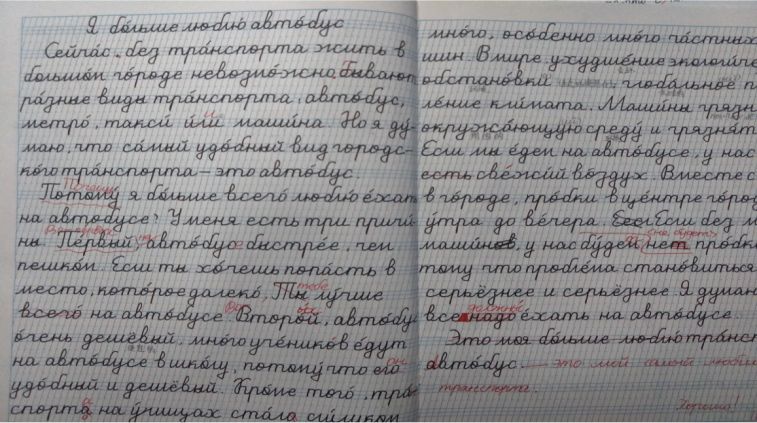 Я бо́льше люблю́ авто́бус
Сейча́с, без тра́нспорта жить в
большо́м го́роде невозмо́жно. Быва́ют
ра́зные виды тра́нспорта, авто́бус,
метро́, такси́ и́ли маши́на. Но я ду́-
маю, что са́мый удо́бный вид городс-
ко́го тра́нспорта – э́то авто́бус.
Почему
Потому́ я бо́льше всего́ люблю́ е́хать
на авто́бусе? У меня есть три причи́-
ны. Пе́рвый, авто́бус быстре́е, чем
пешко́м. Если ты хо́чешь попа́сть в
тебе
ме́сто, кото́рое далеко́, Ты лу́чше
всего́ на авто́бусе. Второ́й, авто́бу
о́чень дешёвый, мно́го ученико́в е́дут
на авто́бусе в шко́лу, потому́ что его
он
удо́бный и дешёвый. Кро́ме того́, тра́
спорта на у́лицах ста́ло сли́шком
мно́го, осо́бенно мно́го ча́стных
шин. В мире ухудше́ние экологи́че
обстано́вки, глоба́льное п
ле́ние кли́мата. Маши́ны грязн
окружа́ющую среду́ и грязня́т
Если мы е́дем на авто́бусе, у нас
есть све́жий во́здух. Вместе с
в го́роде, про́бки в це́нтре го́ро
у́тра до ве́чера. Если без м
маши́нов, у нас бу́дем нет про́бк
тому́ что пробле́ма станови́ться
серьёзнее и серьёзнее. Я ду́ма
все на́до е́хать на авто́бусе.
Это моя бо́льше люблю́ тра́нс
авто́бус. — это мой самый любим
транспорта.
Хорошо!